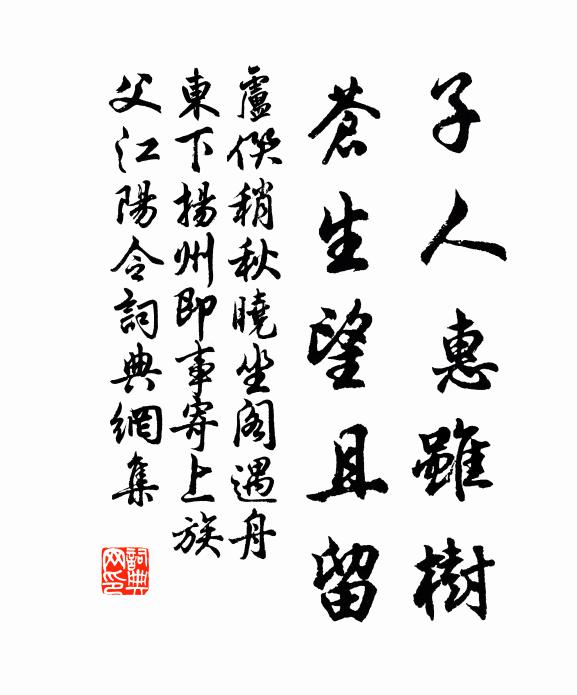 子人惠雖樹
蒼生望且留
盧僎稍秋曉坐閣遇舟
東下揚州即事寄上族
父江陽令詞典網集
詞典
网印